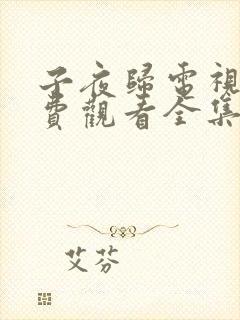 子夜歸電視
費觀看全集
艾芬